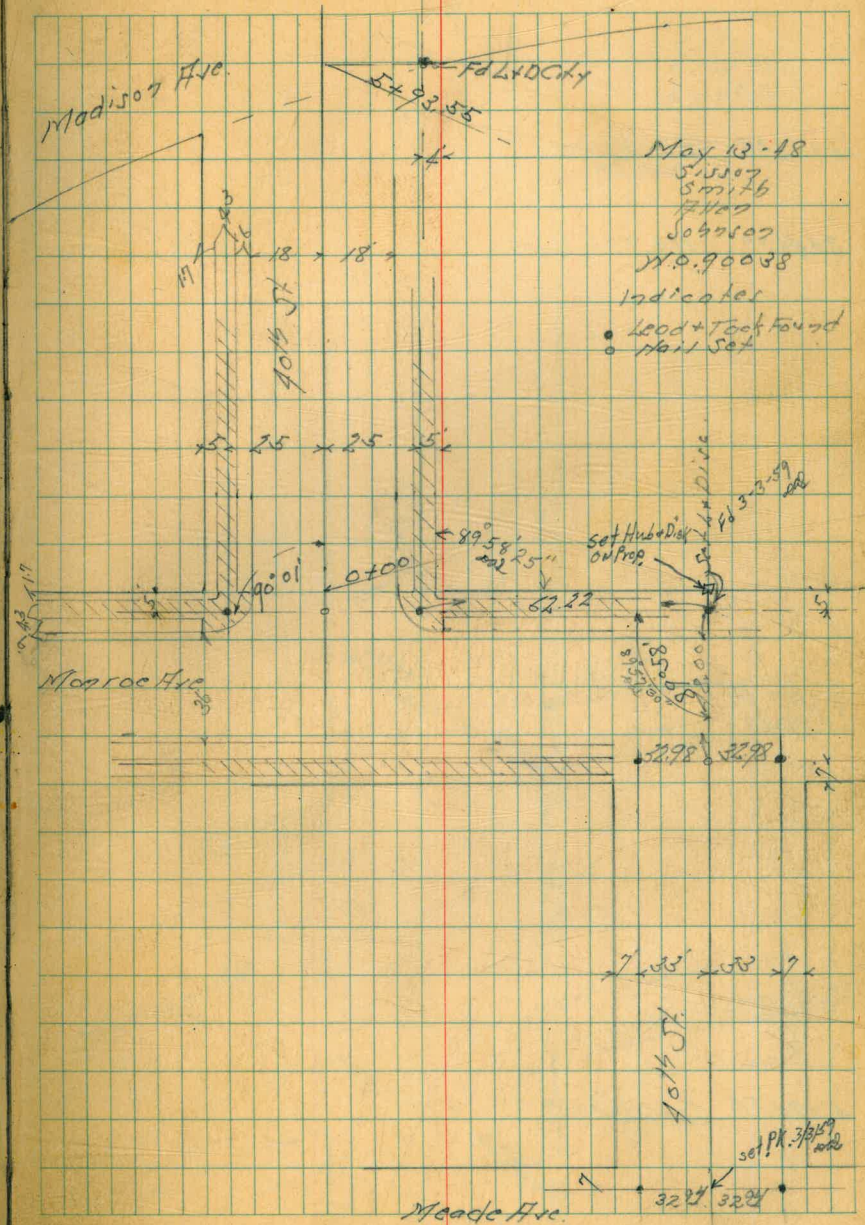 Madison Ave.
Fd L+D City
5+93.55
4'
May 13-48
Sisson
Smith
Allen
Johnson
W.O. 90038
Indicates
● Lead + Tack Found
○ Nail Set
17
18 18'
40th St
5 25 25 5'
89° 58' 25"
Set Hub & Disk
on Prop.
Fd 3-3-59
90° 01'
0+00
62.22
1.7
5'
Monroe Ave
36
89° 58'
32.98 32.98
7'
7' 33' 33 7
40th St.
set PK. 3/3/59
7
32.94 32.94
Meade Ave.